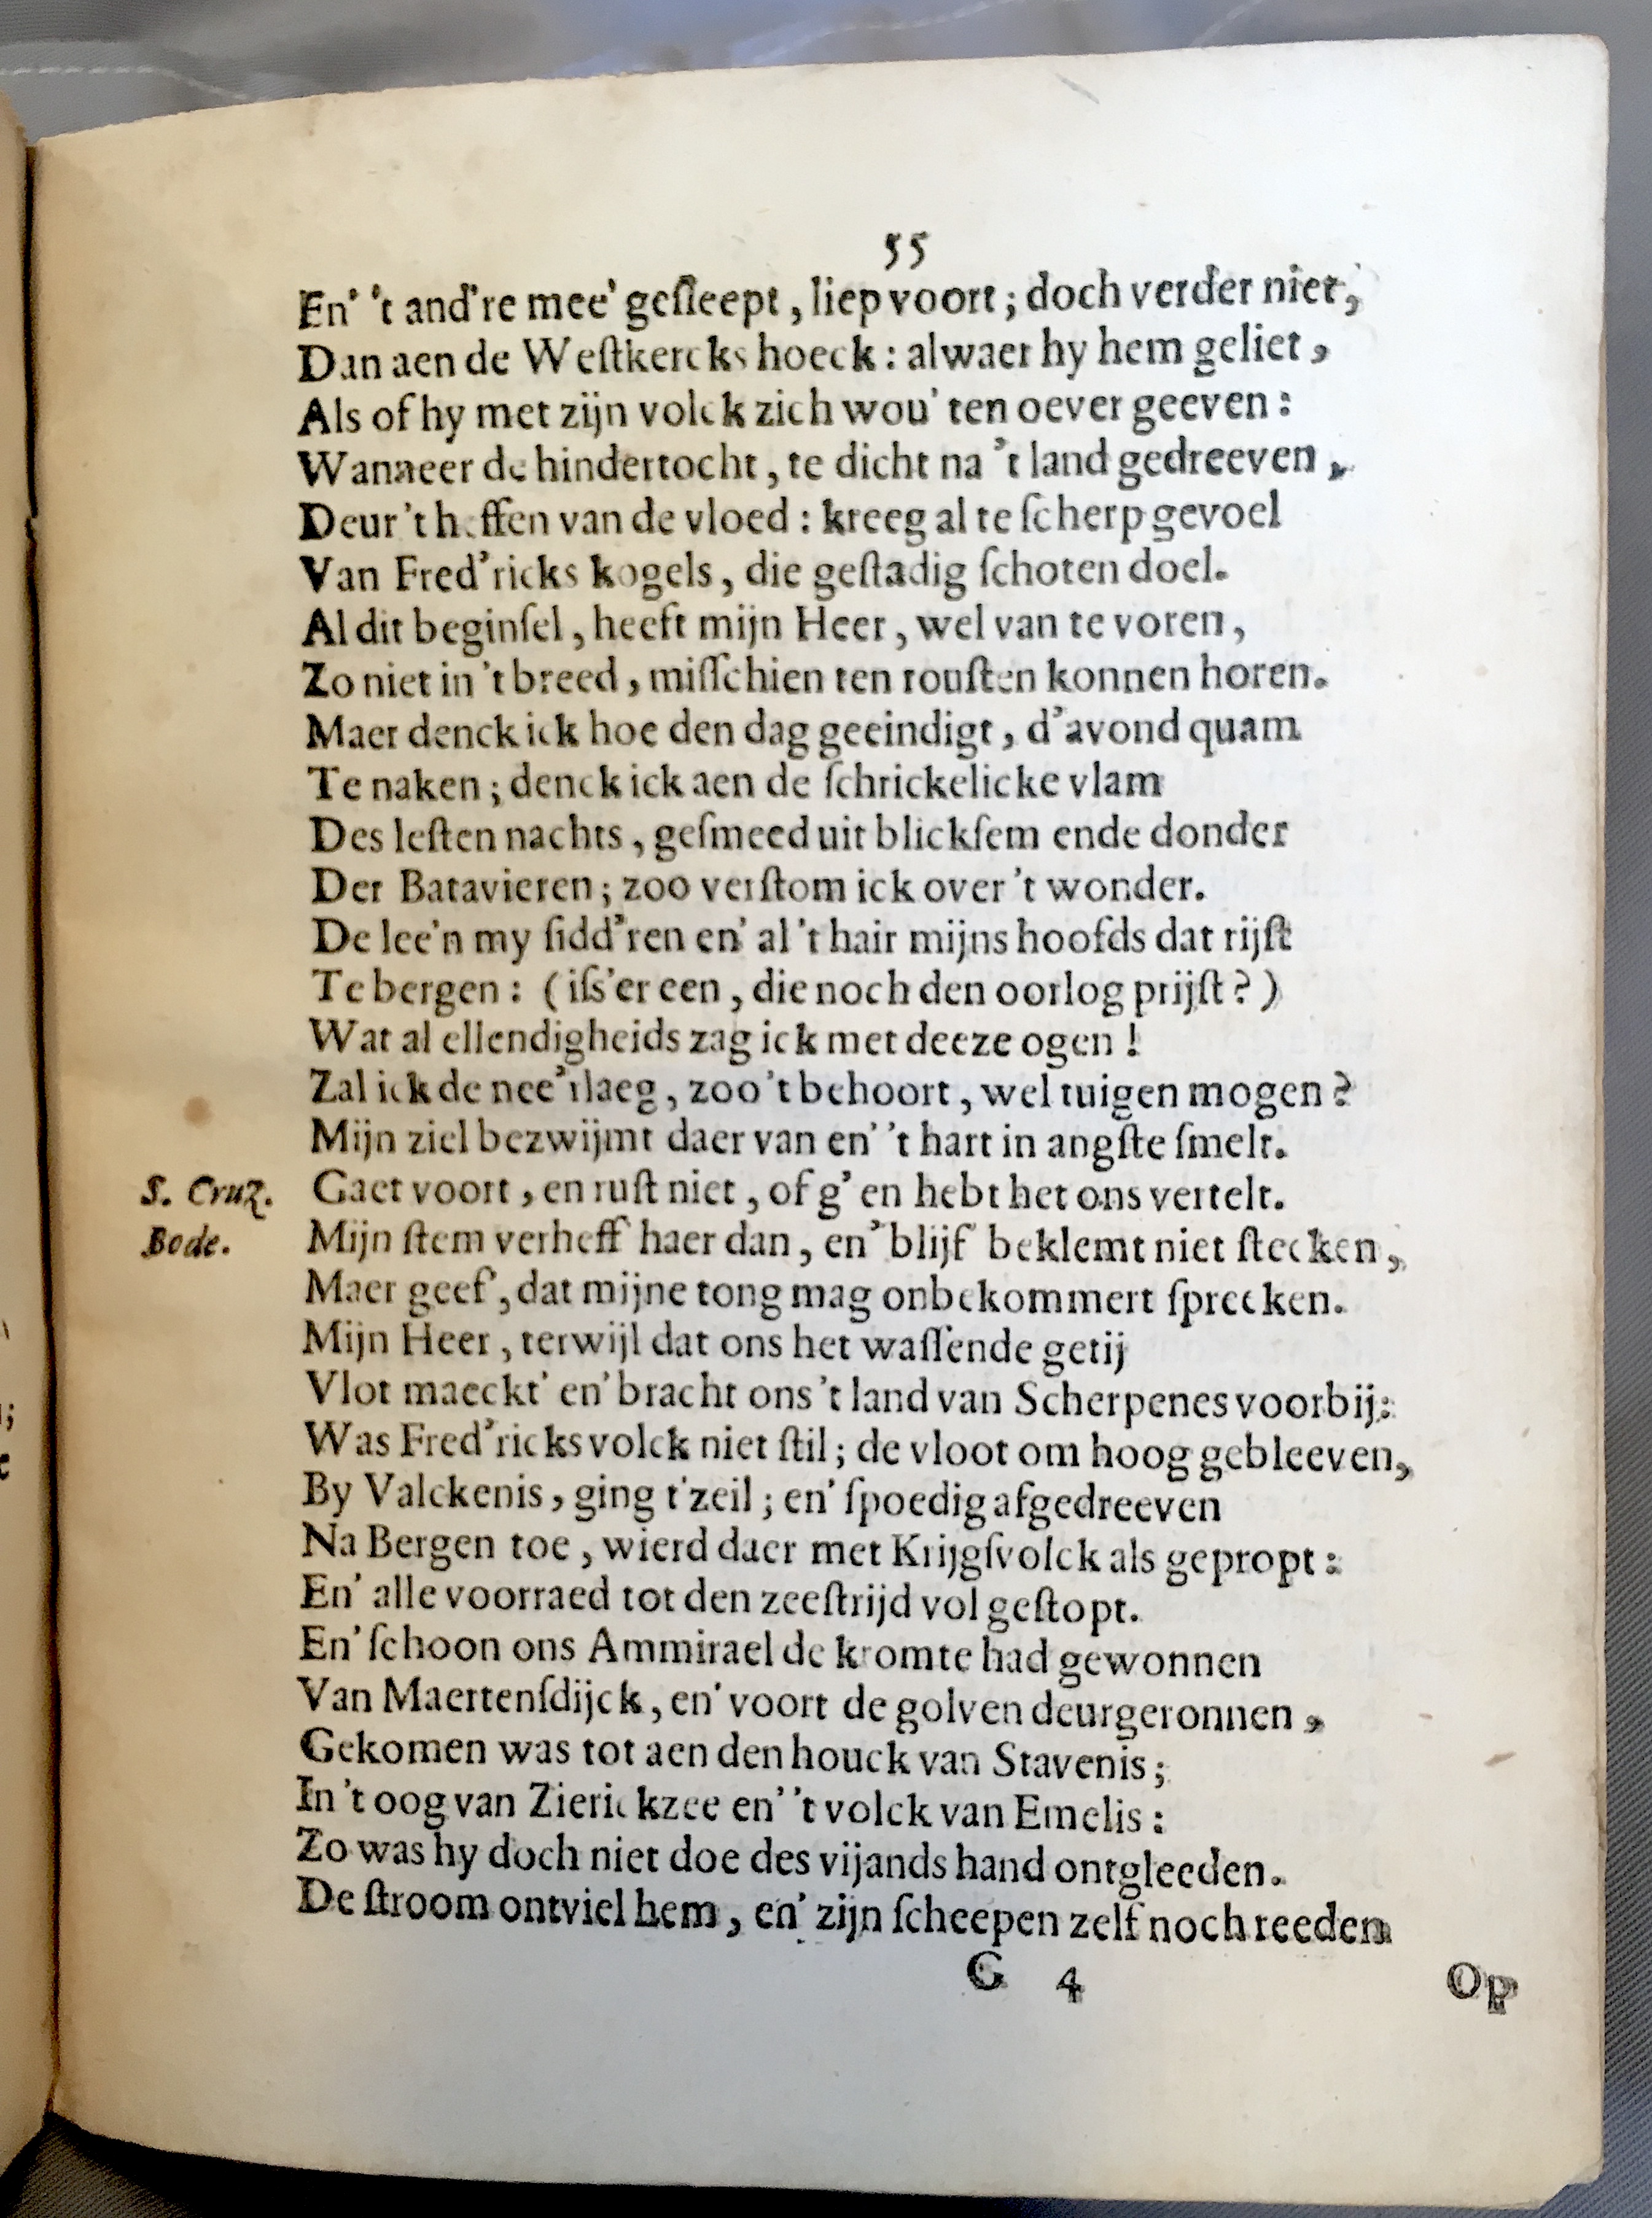 55
En' 't and're mee' geſleept, liep voort; doch verder niet,
Dan aen de Weſtkercks hoeck: alwaer hy hem geliet,
Als of hy met zijn volck zich wou' ten oever geeven:
Wanneer de hindertocht, te dicht na 't land gedreeven,
Deur 't heffen van de vloed: kreeg al te ſcherp gevoel
Van Fred'ricks kogels, die geſtadig ſchoten doel.
Al dit beginſel, heeft mijn Heer, wel van te voren,
Zo niet in 't breed, miſſchien ten rouſten konnen horen.
Maer denck ick hoe den dag geeindigt, d'avond quam
Te naken; denck ick aen de ſchrickelicke vlam
Des leſten nachts, geſmeed uit blickſem ende donder
Der Batavieren; zoo verſtom ick over 't wonder.
De lee'n my ſidd'ren en' al 't hair mijns hoofds dat rijſt
Te bergen: (iſs'er een, die noch den oorlog prijſt?)
Wat al ellendigheids zag ick met deeze ogen!
Zal ick de nee'rlaeg, zoo 't behoort, wel tuigen mogen?
Mijn ziel bezwijmt daer van en' 't hart in angſte ſmelt.
S. Cruz. Gaet voort, en ruſt niet, of g' en hebt het ons vertelt.
Bode. Mijn ſtem verheff' haer dan, en' blijf' beklemt niet ſteeken,
Maer geef', dat mijne tong mag onbekommert ſpreeken.
Mijn Heer, terwijl dat ons het waſſende getij
Vlot maeckt' en' bracht ons 't land van Scherpenes voorbij:
Was Fred'ricks volck niet ſtil; de vloot om hoog gebleeven,
By Valckenis, ging t'zeil; en' ſpoedig afgedreeven
Na Bergen toe, wierd daer met Krijgſvolck als gepropt:
En' alle voorraed tot den zeeſtrijd vol geſtopt.
En' ſchoon ons Ammirael de kromte had gewonnen
Van Maertenſdijck, en' voort de golven deurgeronnen,
Gekomen was tot aen den houck van Stavenis;
In 't oog van Zierickzee en' 't volck van Emelis:
Zo was hy doch niet doe des vijands hand ontgleeden.
De ſtroom ontviel hem, en' zijn ſcheepen zelf noch reeden
G 4 Op